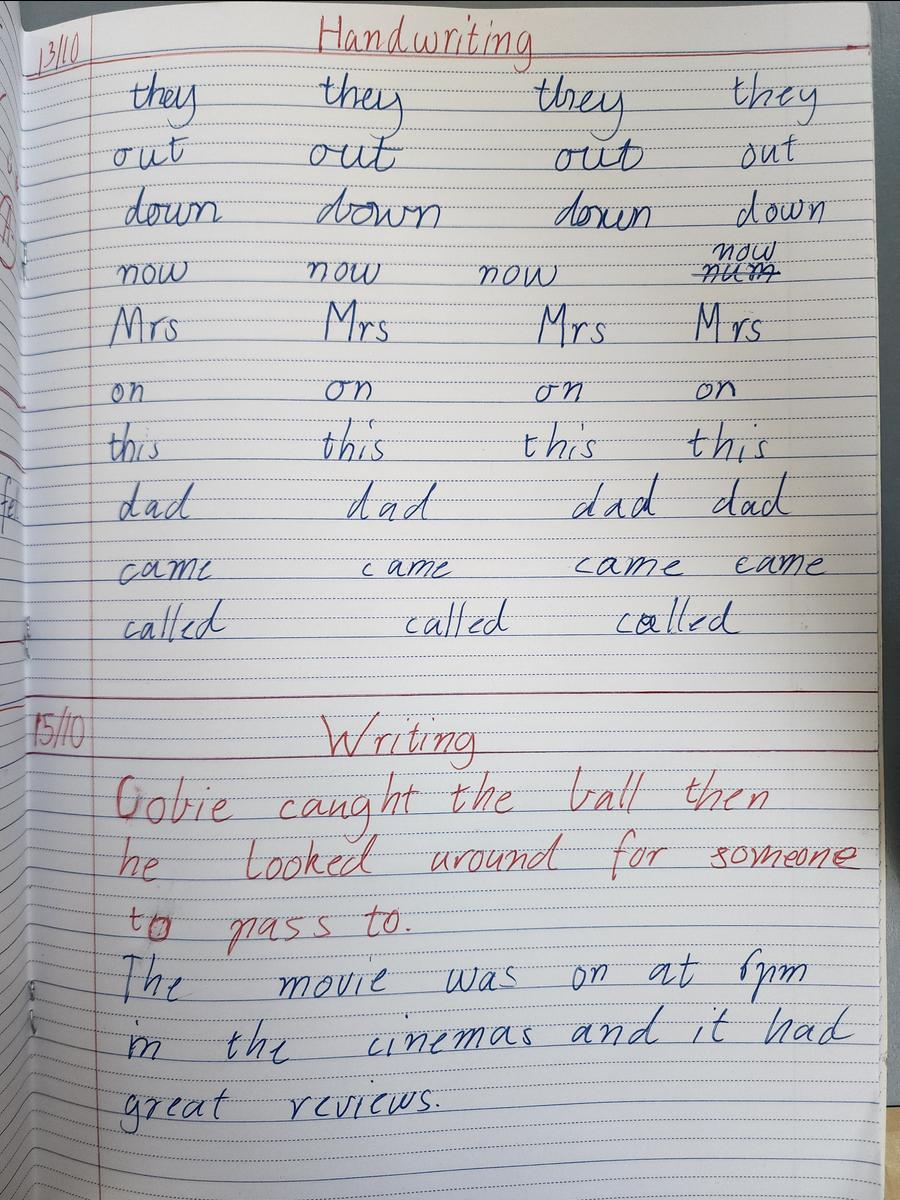 13/10 Handwriting
they they they they
out out out out
down down down down
now now now now
Mrs Mrs Mrs Mrs
on on on on
this this this this
dad dad dad dad
came came came came
called called called
15/10 Writing
caught the ball then
he looked around for someone
to pass to.
The movie was on at 6pm
in the cinemas and it had
great reviews.